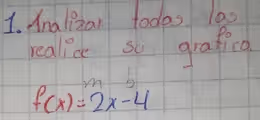 1. Analizar todas las
realice su grafica.
m b
f(x)=2x-4